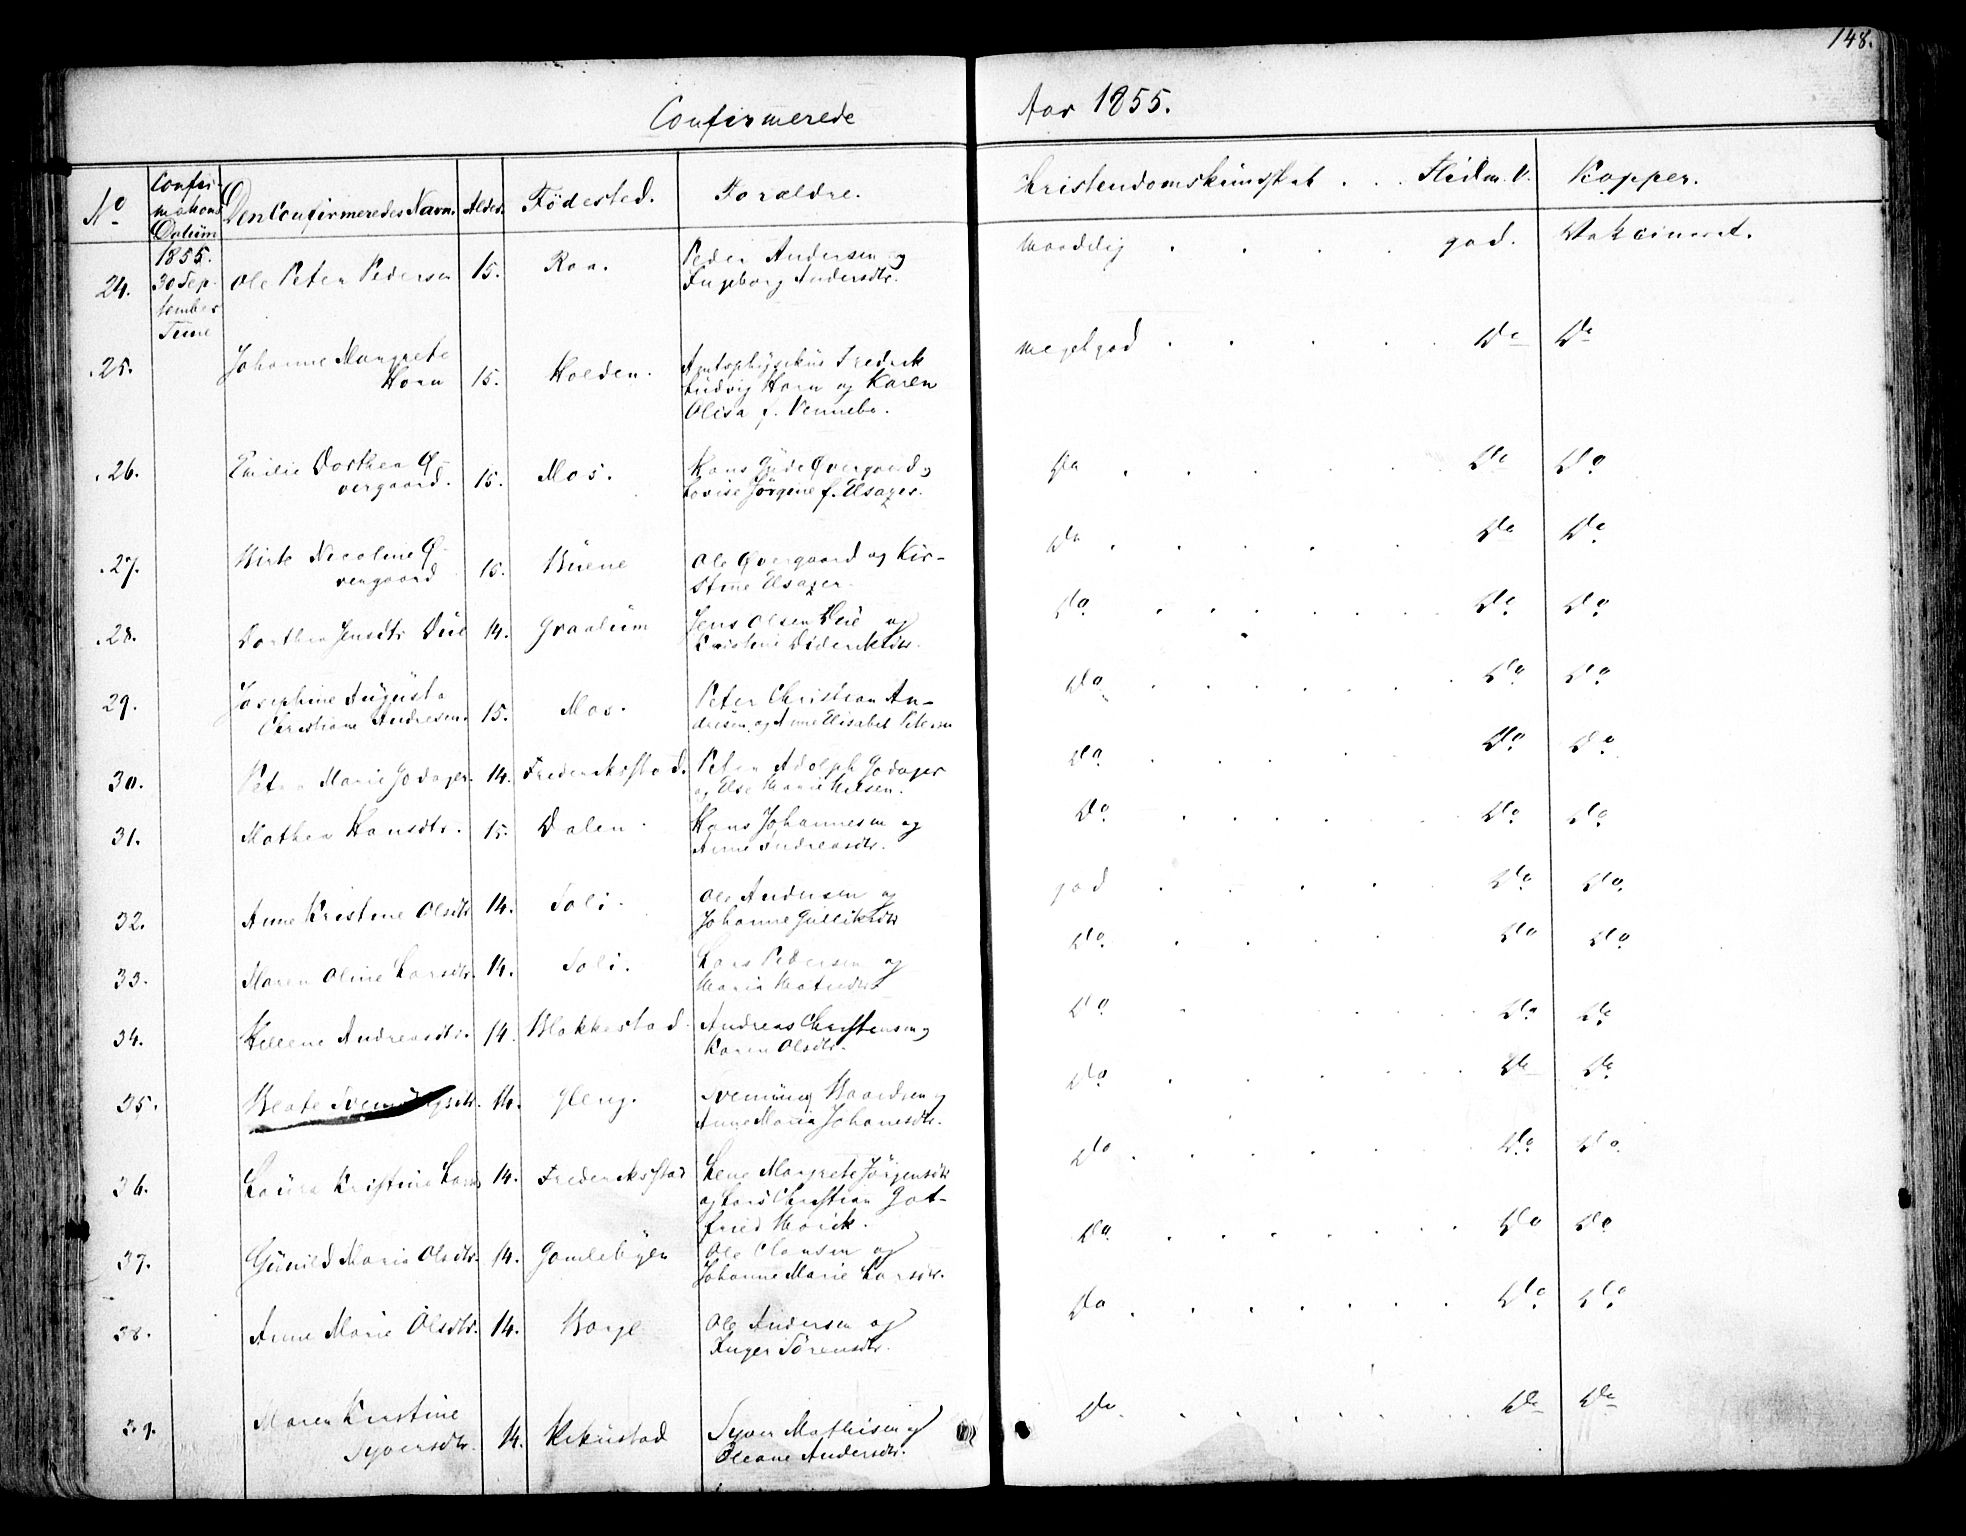 148.
Confirmerede Aar 1855.
No Confirmations Datum Den Confirmeredes Navn. Alder. Födested. Forældre. Christendomskundskab . . . Flid m. V. Kopper.
1855.
24. 30 September Tune Ole Peter Pedersen 15. Roa. Peder Andersen og maadelig . . . . god. Vakcineret.
Ingeborg Andersdtr.
25. Johanne Margrete Horn 15. Holden. Amtsphysikus Fredrik meget god . . . . . Do Do
Ludvig Horn og Karen
Olisa f.
26. Emilie Dorthea Øvergaard. 15. Mos. Hans Gude Øvergaard og Do . . . . . Do Do
Lovise Jørgine f. Elsager.
27. Nicoline Øvergaard 15. Ole Øvergaard og Kir- Do . . . . . Do Do
stine Elsager.
28. Dorthea Jensdtr Due 14. Graalum Jens Olsen Due og Do . . . . . Do Do
Didenriksdtr.
29. Josephine Augusta 15. Mos. Peter Christian An- Do . . . . . Do Do
Christiane Andresen. dresen og Anne Elisabet Petersen
30. Petra Marie Godager. 14. Frederiksstad. Peter Adolph Godager Do . . . Do Do
og Else Marie Nilsen.
31. Mathea Hansdtr. 15. Dalen. Hans Johannesen og Do . . . . . Do Do
Anne Andreasdtr.
32. Anne Kristine Olsdtr 14. Soli. Ole Andersen og god . . . . . Do Do
Johanne Gulliksdtr
33. Maren Oline Larsdtr. 14. Soli. Lars Pedersen og Do . . . . . Do Do
Maria
34. Helene Andreasdtr. 14. Blakkestad. Andreas Christensen og Do . . . . . Do Do
Karen Olsdtr.
35. Beate Svenungsdtr. 14. Gleng. Svenung Baardsen og Do . . . . . Do Do
Anne Maria Johanesdtr.
36. Laura Kristine 14. Frederiksstad Lene Margrete Jörgensdtr Do . . . . . Do Do
og Lars Christian Got-
fried
37. Gunild Maria Olsdtr. 14. Gamlebyen Ole Clausen og Do . . . . . Do Do
Johanne Marie Larsdtr.
38. Anne Marie Olsdtr. 14. Borge Ole Andersen og Do . . . . . Do Do
Inger Sörensdtr.
39. Maren Kristine 14. Syver Mathisen og Do . . . . . Do Do
Syversdtr. Oleane Andersdtr.